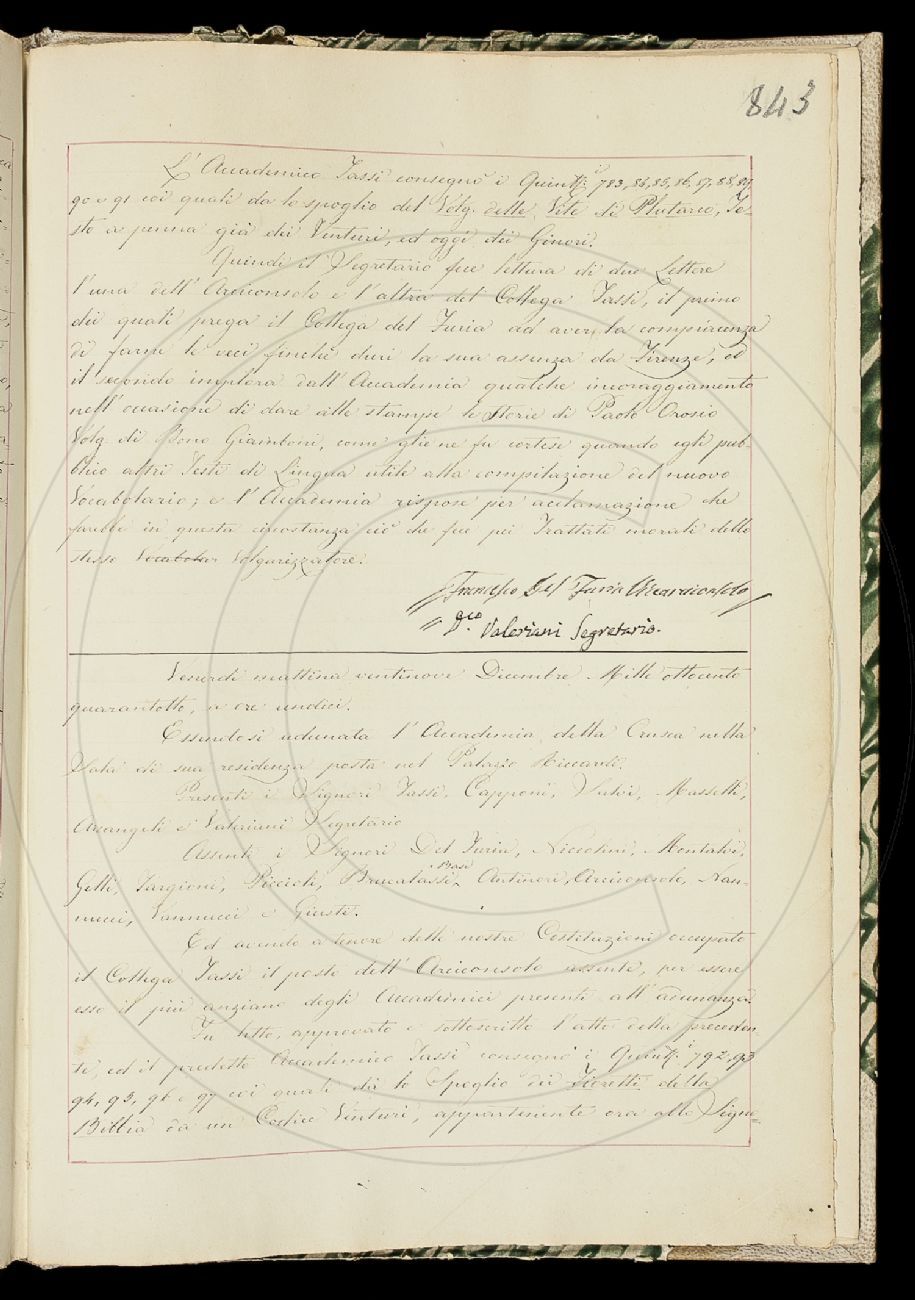 843
L'Accademico Tassi consegnò i Quint.i 783, 84, 85, 86, 87, 88, 89,
90 e 91 coi quali dà lo spoglio del Volg. delle Vite di Plutarco, Te-
sto a penna già dei Venturi, ed oggi dei Ginori.
Quindi il Segretario fece lettura di due Lettere
l'una dell'Arciconsolo e l'altra del Collega Tassi, il primo
dei quali prega il Collega del Furia ad aver la compiacenza
di farne le veci finchè duri la sua assenza da Firenze, ed
il secondo implora dall'Accademia qualche incoraggiamento
nell'occasione di dare alle stampe le Storie di Paolo Orosio
Volg. di Bono Giamboni, come gliene fu cortese quando egli pub-
blicò altri Testi di Lingua utile alla compilazione del nuovo
Vocabolario; e l'Accademia rispose per acclamazione che
farebbe in questa circostanza ciò che fece pei Trattati morali dello
stesso Vocabola Volgarizzatore.
Francesco Del Furia Vicearciconsolo
Valeriani Segretario.
Venerdì mattina ventinove Dicembre Mille ottocento
quarantotto, a ore undici.
Essendosi adunata l'Accademia della Crusca nella
Sala di sua residenza posta nel Palazzo Riccardi.
Presenti i Signori Tassi, Capponi, Salvi, Masselli,
Arcangeli e Valeriani Segretario
Assenti i Signori Del Furia, Niccolini, Montalvi,
Gelli, Targioni, Piccioli, Brucalassi, Basi Antinori, Arciconsolo, Nan-
nucci, Vannucci e Giusti.
Ed avendo a tenore delle nostre Costituzioni occupato
il Collega Tassi il posto dell'Arciconsolo assente, per essere
esso il più anziano degli Accademici presenti all'adunanza.
Fu letto, approvato e sottoscritto l'atto della preceden
te, ed il predetto Accademico Tassi consegnò i Quint.i 792, 93
94, 95, 96 e 97 coi quali dà lo Spoglio dei Fioretti della
Bibbia da un Codice Venturi, appartenente ora alla Signo=